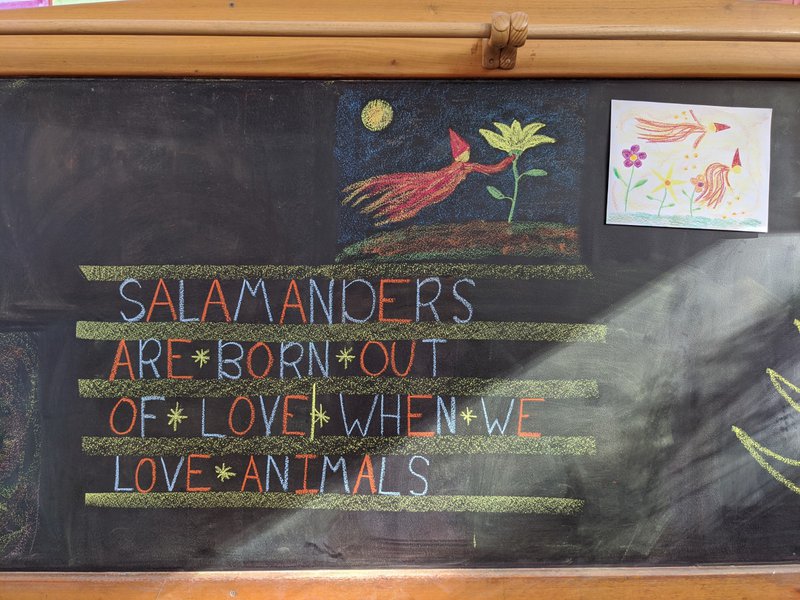 SALAMANDERS
ARE * BORN * OUT
OF * LOVE * WHEN * WE
LOVE * ANIMALS